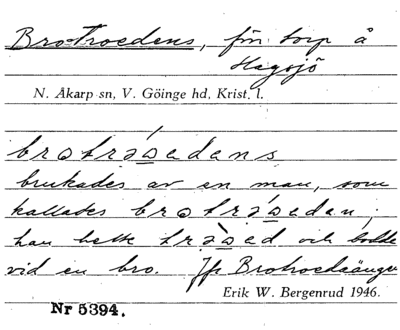 Bro-Troedens, fön torp å
Hagsjö
N. Åkarp sn, V. Göinge hd, Krist. l.
brotrǝsedens
brukades av en man, som
kallades brotrǝsedan;
han hette trǝsed och bodde
vid en bro. Jfr Brotroedaängen
Erik W. Bergenrud 1946.
Nr 5394.